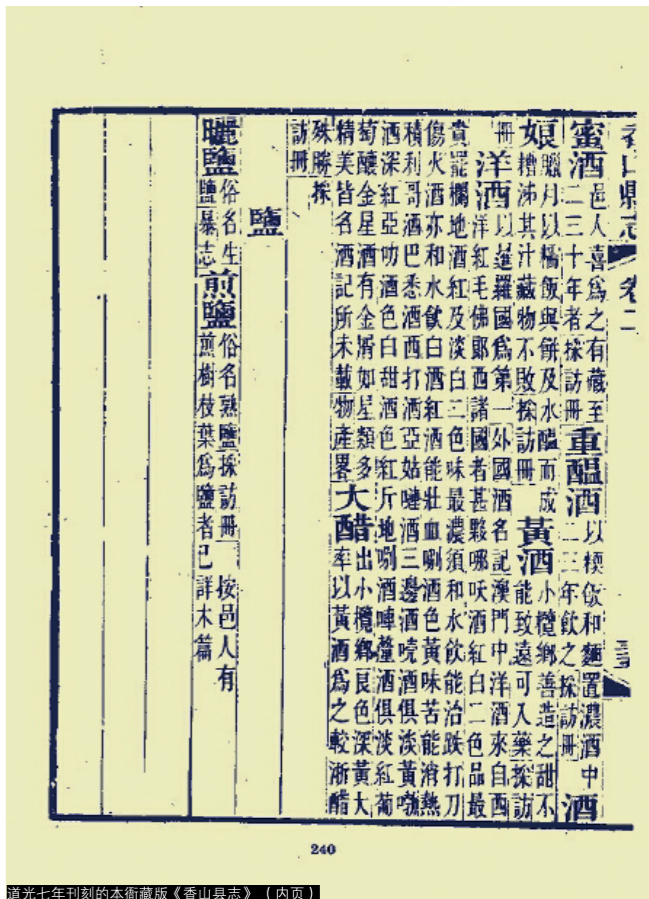 香山縣志 卷二
蜜酒 邑人喜為之有藏至
二三十年者採訪冊 重醞酒 以糗飯和麵置濃酒中
二三年飲之採訪冊 酒
娘 臘月以糯飯與餅及水醞而成
糟沸其汁藏物不敗採訪冊 黃酒 小欖鄉善造之甜不
能致遠可入藥採訪
冊 洋酒 以暹羅國為第一外國酒名記澳門中洋酒來自西
洋紅毛佛郎西諸國者甚夥哪吠酒紅白二色品最
貴罷欄地酒紅及淡白二色味最濃須和水飲能治跌打刀
傷火酒亦和水飲白酒紅酒能壯血唎酒色黃味苦能消熱
積利哥酒巴悉酒西打酒亞姑嗹酒三邊酒酒俱淡黃
酒深紅亞叻酒色白甜酒色紅斤地唎酒酒俱淡紅葡
萄釀金星酒有金屑如星類多
精美皆名酒記所未載物產畧 大醋 出小欖鄉艮色深黃大
率以黃酒為之較浙醋
殊勝採
訪冊
鹽
曬鹽 俗名生
鹽暴志 煎鹽 俗名熟鹽採訪冊 按邑人有
煎樹枝葉為鹽者已詳木篇
240
道光七年刊刻的本衙藏版《香山县志》（内页）